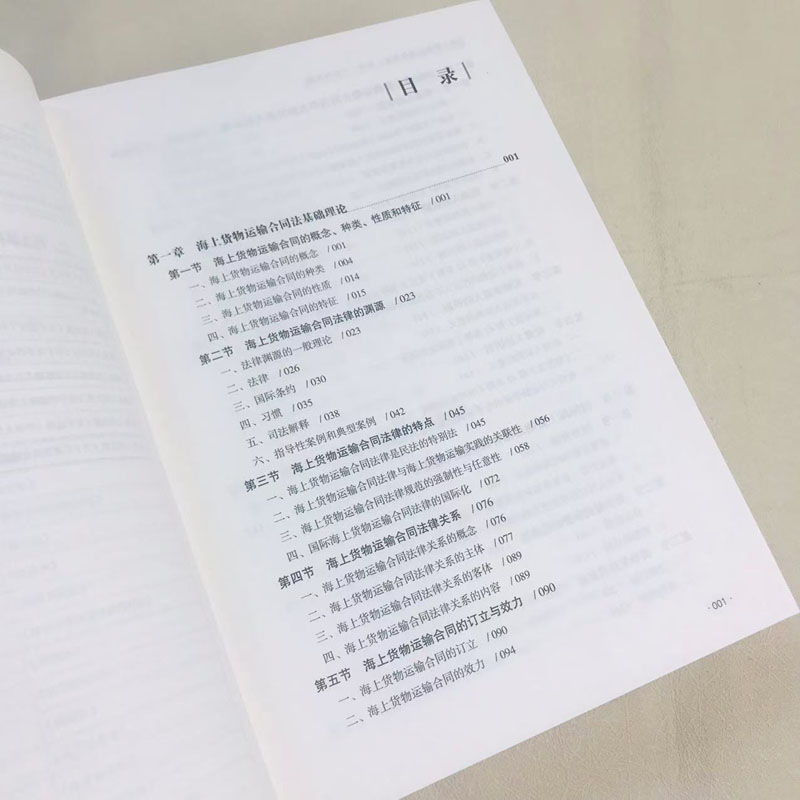 目 录
第一章 海上货物运输合同法基础理论 001
第一节 海上货物运输合同的概念、种类、性质和特征 /001
一、海上货物运输合同的概念 /001
二、海上货物运输合同的种类 /004
三、海上货物运输合同的性质 /014
四、海上货物运输合同的特征 /015
第二节 海上货物运输合同法律的渊源 /023
一、法律渊源的一般理论 /023
二、法律 /026
三、国际条约 /030
四、习惯 /035
五、司法解释 /038
六、指导性案例和典型案例 /042
第三节 海上货物运输合同法律的特点 /045
一、海上货物运输合同法律是民法的特别法 /045
二、海上货物运输合同法律与海上货物运输实践的关联性 /056
三、海上货物运输合同法律规范的强制性与任意性 /058
四、国际海上货物运输合同法律的国际化 /072
第四节 海上货物运输合同法律关系 /076
一、海上货物运输合同法律关系的概念 /076
二、海上货物运输合同法律关系的主体 /077
三、海上货物运输合同法律关系的客体 /089
四、海上货物运输合同法律关系的内容 /089
第五节 海上货物运输合同的订立与效力 /090
一、海上货物运输合同的订立 /090
二、海上货物运输合同的效力 /094
·001·